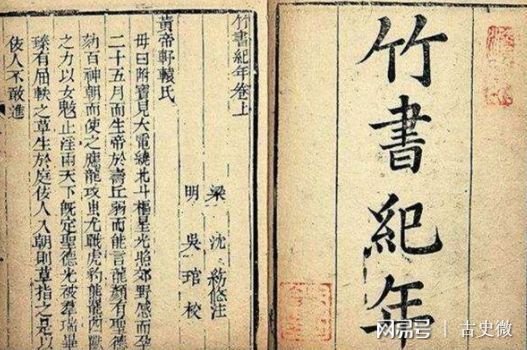 竹書紀年
竹書紀年卷上
梁 沈 約 修注
明 吳 琯 校
黃帝軒轅氏
母曰附寶見大電繞北斗樞星光照郊野感而孕
二十五月而生帝於壽丘弱而能言龍顏有聖德
劾百神朝而使之應龍攻蚩尤戰虎豹熊羆四獸
之力以女魃止淫雨天下既定聖德光被羣瑞畢
臻有屈軼之草生於庭佞人入朝則草指之是以
佞人不敢進
网易号 | 古史微